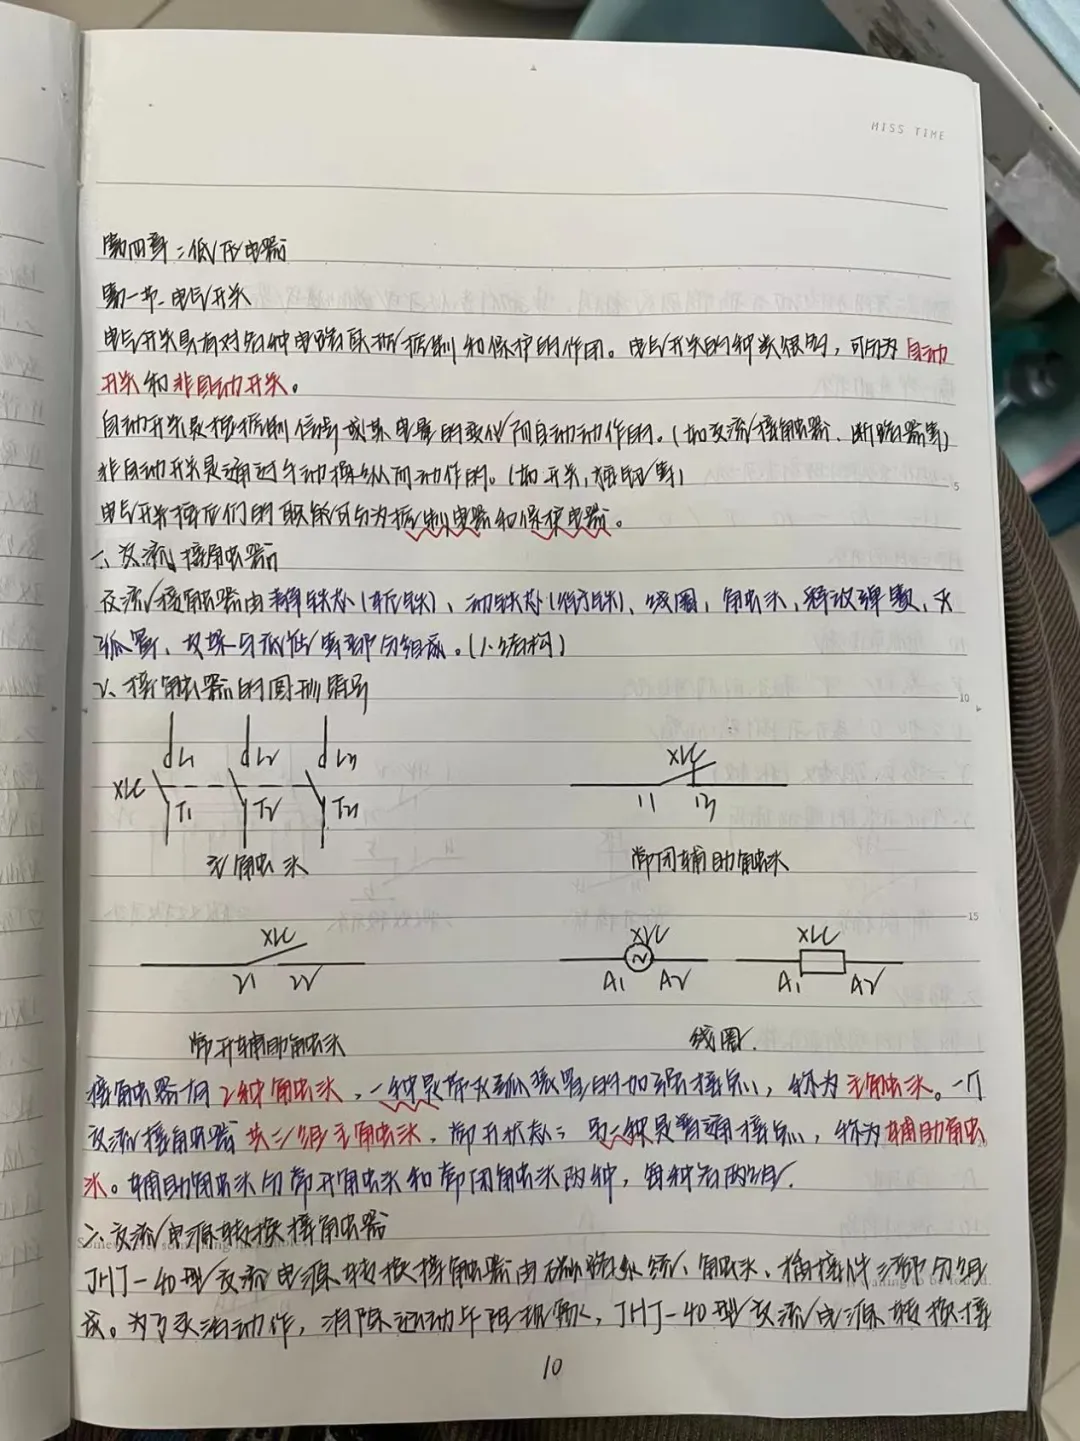 MISS TIME
第四章：低压电器
第一节、电气开关
电气开关具有对各种电路系统控制和保护的作用。电气开关的种类很多，可分为自动
开关和非自动开关。
自动开关是按控制信号或某电量的变化而自动动作的。(如交流接触器、断路器等)
非自动开关是通过手动操纵而动作的。(如开关,按钮等)
电气开关按它们的职能可分为控制电器和保护电器。
一、交流接触器
交流接触器由静铁芯(轭铁)、动铁芯(衔铁)、线圈,触头,释放弹簧,灭
弧罩、支架与底板等部分组成。(1.结构)
2、接触器的图形符号
L1 L2 L3
XLC T1 T2 T3
XLC
11 12
主触头 常闭辅助触头
XLC XLC XLC
21 22 A1 A2 A1 A2
常开辅助触头 线圈
接触器有2种触头,一种是带灭弧装置的加强接点,称为主触头。一个
交流接触器共三组主触头,常开状态;另一种是普通接点,称为辅助触
头。辅助触头分常开触头和常闭触头两种,每种有两组.
二、交流电源转换接触器
JHJ-40型交流电源转换接触器由磁路系统、触头、插接件三部分组
成。为了灵活动作,消除运动午阻现象,JHJ-40型交流电源转换接
10
5
10
15